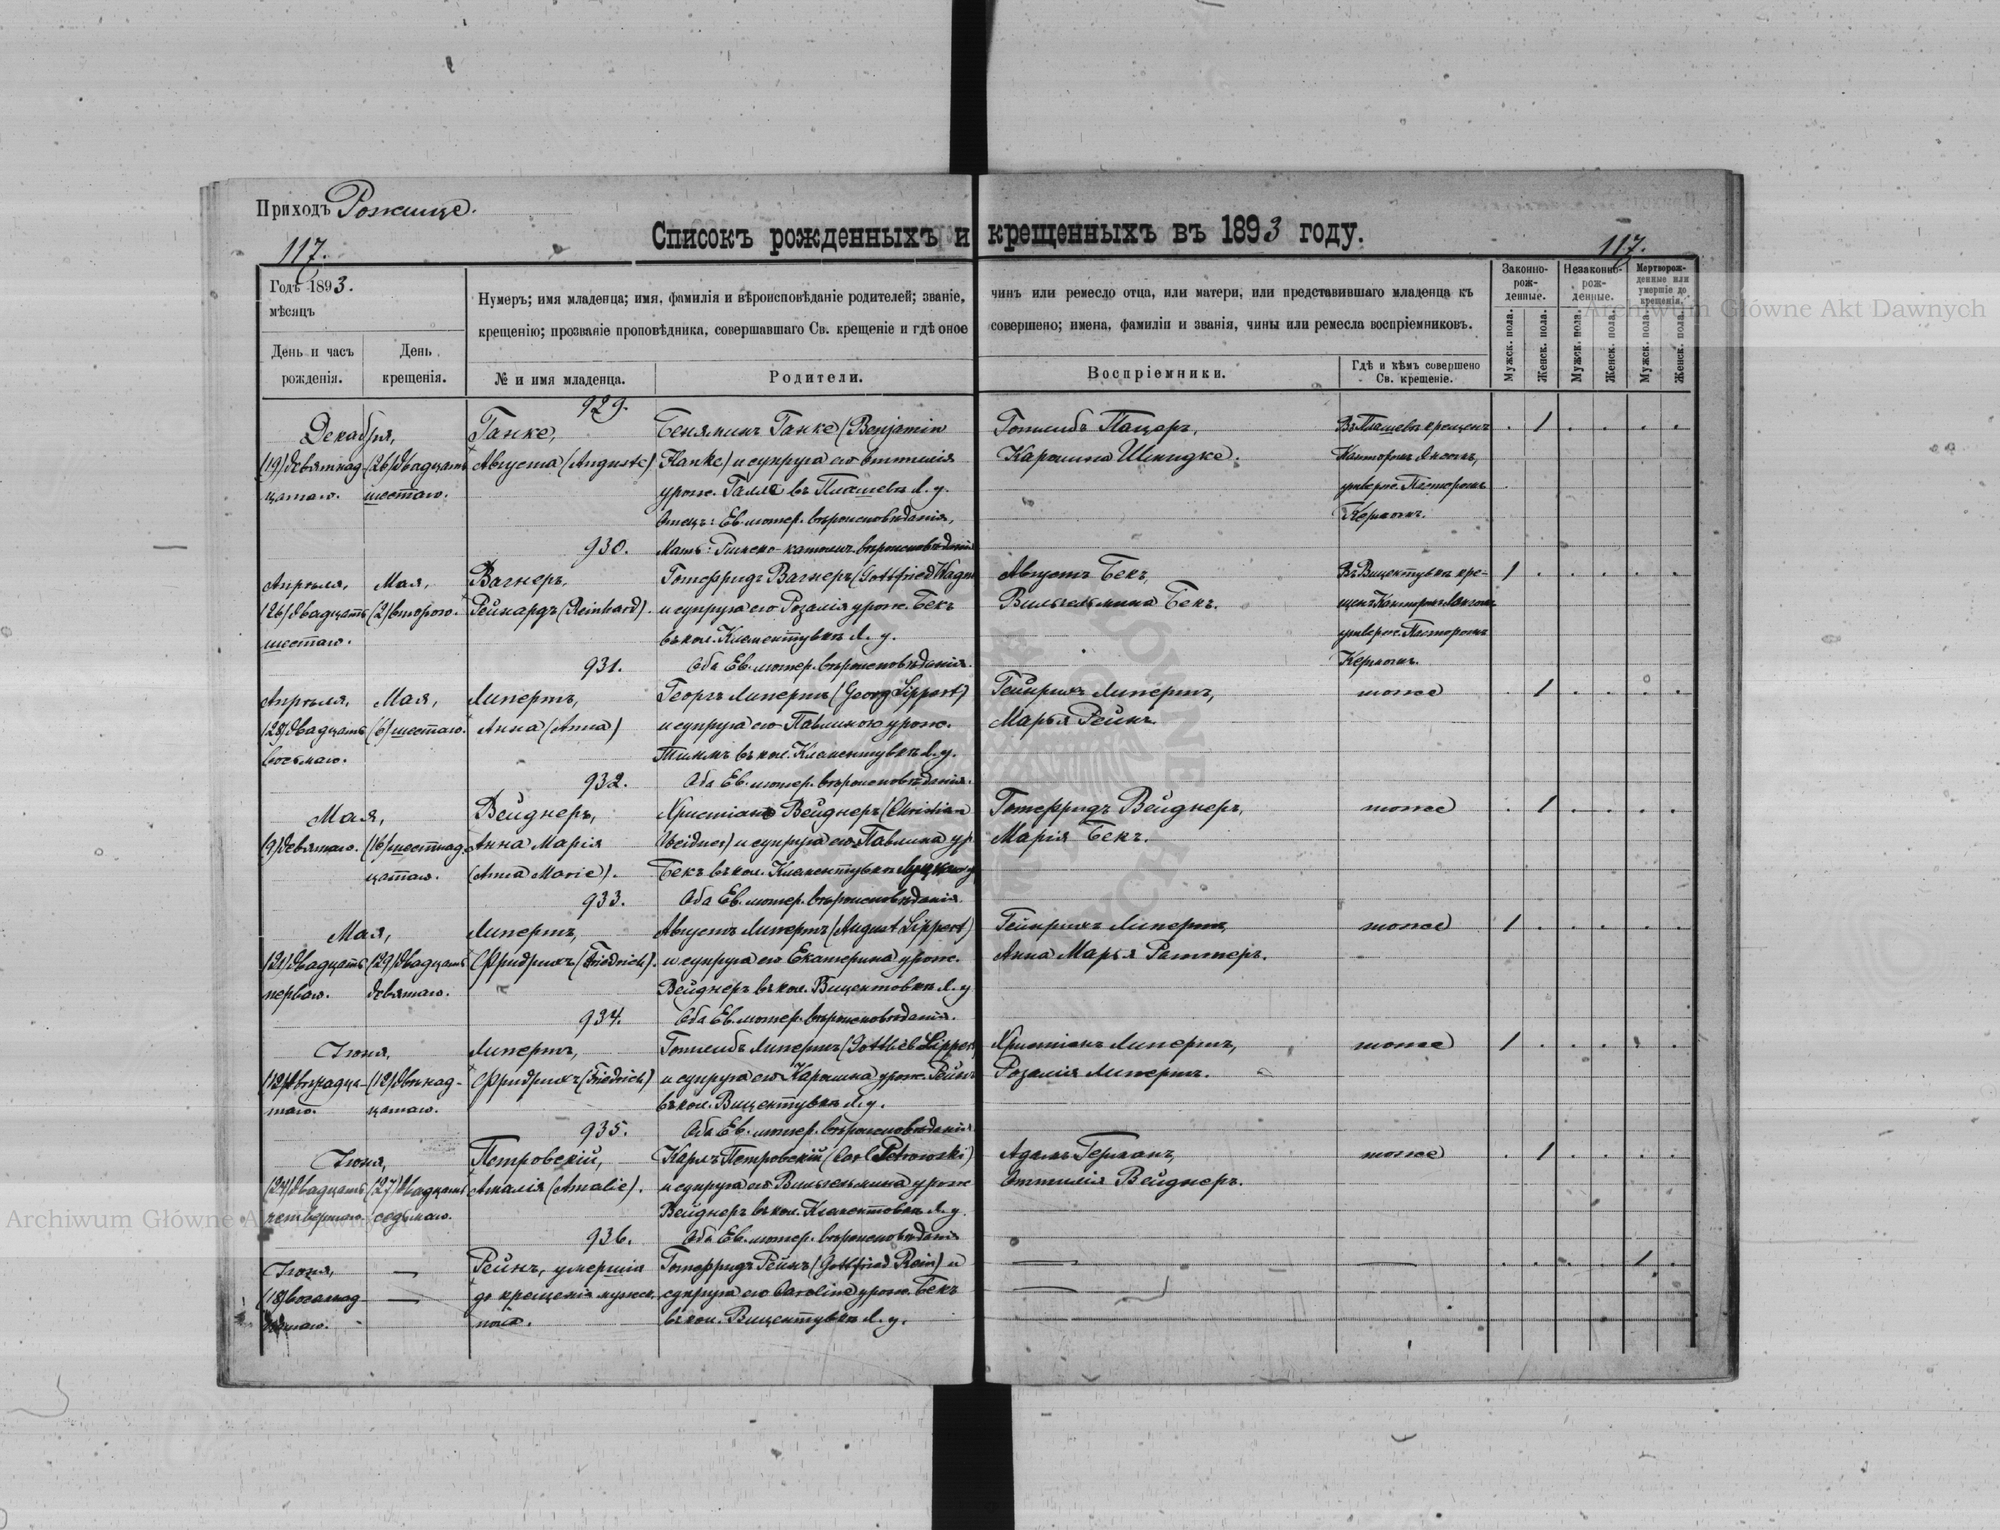 Приходъ Рожище.
117.
117.
Списокъ рожденныхъ и крещенныхъ въ 1893 году.
Годъ 1893.
мѣсяцъ
День и часъ рожденія.
День крещенія.
Нумеръ; имя младенца; имя, фамилія и вѣроисповѣданіе родителей; званіе, чинъ или ремесло отца, или матери, или представившаго младенца къ
крещенію; прозваніе проповѣдника, совершавшаго Св. крещеніе и гдѣ оное совершено; имена, фамиліи и званія, чины или ремесла воспріемниковъ.
№ и имя младенца.
Родители.
Воспріемники.
Гдѣ и кѣмъ совершено Св. крещеніе.
Законно-рож-денные.
Незаконно-рож-денные.
Мертворож-денные или умершіе до крещенія.
Мужск. пола.
Женск. пола.
Мужск. пола.
Женск. пола.
Мужск. пола.
Женск. пола.
929.
Декабря, Ганке, Беняминъ Ганке (Benjamin Готлибъ
(19) девятнад- (26) двадцать Августа (Auguste) Hanke) и супруга его Оттилія Каролина Шмидке.
цатаго. шестаго. урож. Галле въ Пляшевѣ Л. у. утверж. Пасторомъ
Отецъ: Ев. лютер. вѣроисповѣданія, Керномъ.
930. Мать: Римско-катол. вѣроисповѣданія
Апрѣля, Мая, Вагнеръ, Готфридъ Вагнеръ (Gottfried Wagn Августъ Бекъ, Въ Вицентувкѣ кре- 1
(26) двадцать (2) втораго. Рейнардъ (Reinhard). и супруга его Розалія урож. Бекъ Вильгельмина Бекъ. щенъ Канторомъ
шестаго. въ кол. Клементувкѣ Л. у. утверж. Пасторомъ
931. Оба Ев. лютер. вѣроисповѣданія. Керномъ.
Апрѣля, Мая, Липертъ, Георгъ Липертъ (Georg Lippert) Гейнрихъ Липертъ, тоже 1
(28) двадцать (6) шестаго. Анна (Anna) и супруга его Павлина урож. Марья Рейнъ.
восьмаго. въ кол. Клементувкѣ Л. у.
932. Оба Ев. лютер. вѣроисповѣданія.
Мая, Вейднеръ, Христіанъ Вейднеръ (Christian Готфридъ Вейднеръ, тоже 1
(9) девятаго. (16) шестнад- Анна Марія Weidner) и супруга его Павлина ур. Марія Бекъ.
цатаго. (Anna Marie). Бекъ въ кол. Клементувкѣ Луцкаго у
933. Оба Ев. лютер. вѣроисповѣданія.
Мая, Липертъ, Августъ Липертъ (August Lippert) Гейнрихъ Липертъ, тоже 1
(21) двадцать (29) двадцать Фридрихъ (Friedrich). и супруга его Екатерина урож. Анна Марья Раттеръ.
перваго. девятаго. Вейднеръ въ кол. Вицентовкѣ Л. у
934. Оба Ев. лютер. вѣроисповѣданія.
Іюня, Липертъ, Готлибъ Липертъ (Gottlieb Lippert Христіанъ Липертъ, тоже 1
(12) двѣнадца- (12) двѣнад- Фридрихъ (Friedrich) и супруга его Каролина урож. Рейнъ Розалія Липертъ.
таго. цатаго. въ кол. Вицентувкѣ Л. у.
935. Оба Ев. лютер. вѣроисповѣданія
Іюня, Петровскій, Карлъ Петровскій (Carl Petrowski) Адамъ Германъ, тоже 1
(24) двадцать (27) двадцать Амалія (Amalie). и супруга его Вильгельмина урож. Оттилія Вейднеръ.
четвертаго. седьмаго. Вейднеръ въ кол. Клементовкѣ Л. у.
936. Оба Ев. лютер. вѣроисповѣданія
Іюня, — Рейнъ, умершій Готфридъ Рейнъ (Gottfried Rein) и — — 1
(18) восемнад- — до крещенія мужск. супруга его Caroline урож. Бекъ —
цатаго. пола. въ кол. Вицентувкѣ Л. у.
Archiwum Główne Akt Dawnych
Archiwum Główne Akt Dawnych